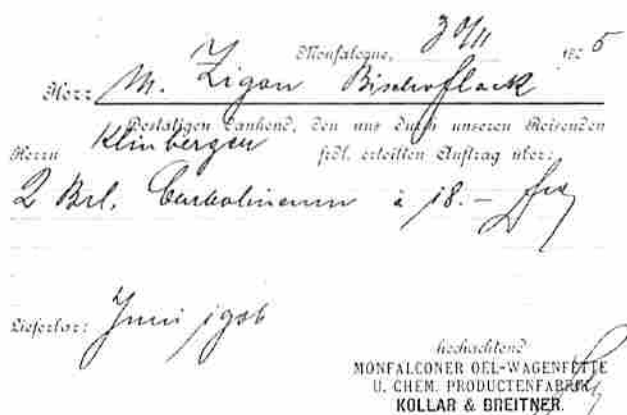 Monfalcone, 30/11 1905
Herr M. Zigon Bischoflack
Bestätigen dankend, den uns durch unseren Reisenden
Herrn Klinberger frdl. erteilten Auftrag über:
2 Brl. Carbolineum à 18.-
Lieferbar: Juni 1906
hochachtend
MONFALCONER OEL-WAGENFETTE
U. CHEM. PRODUCTENFABRIK
KOLLAR & BREITNER.